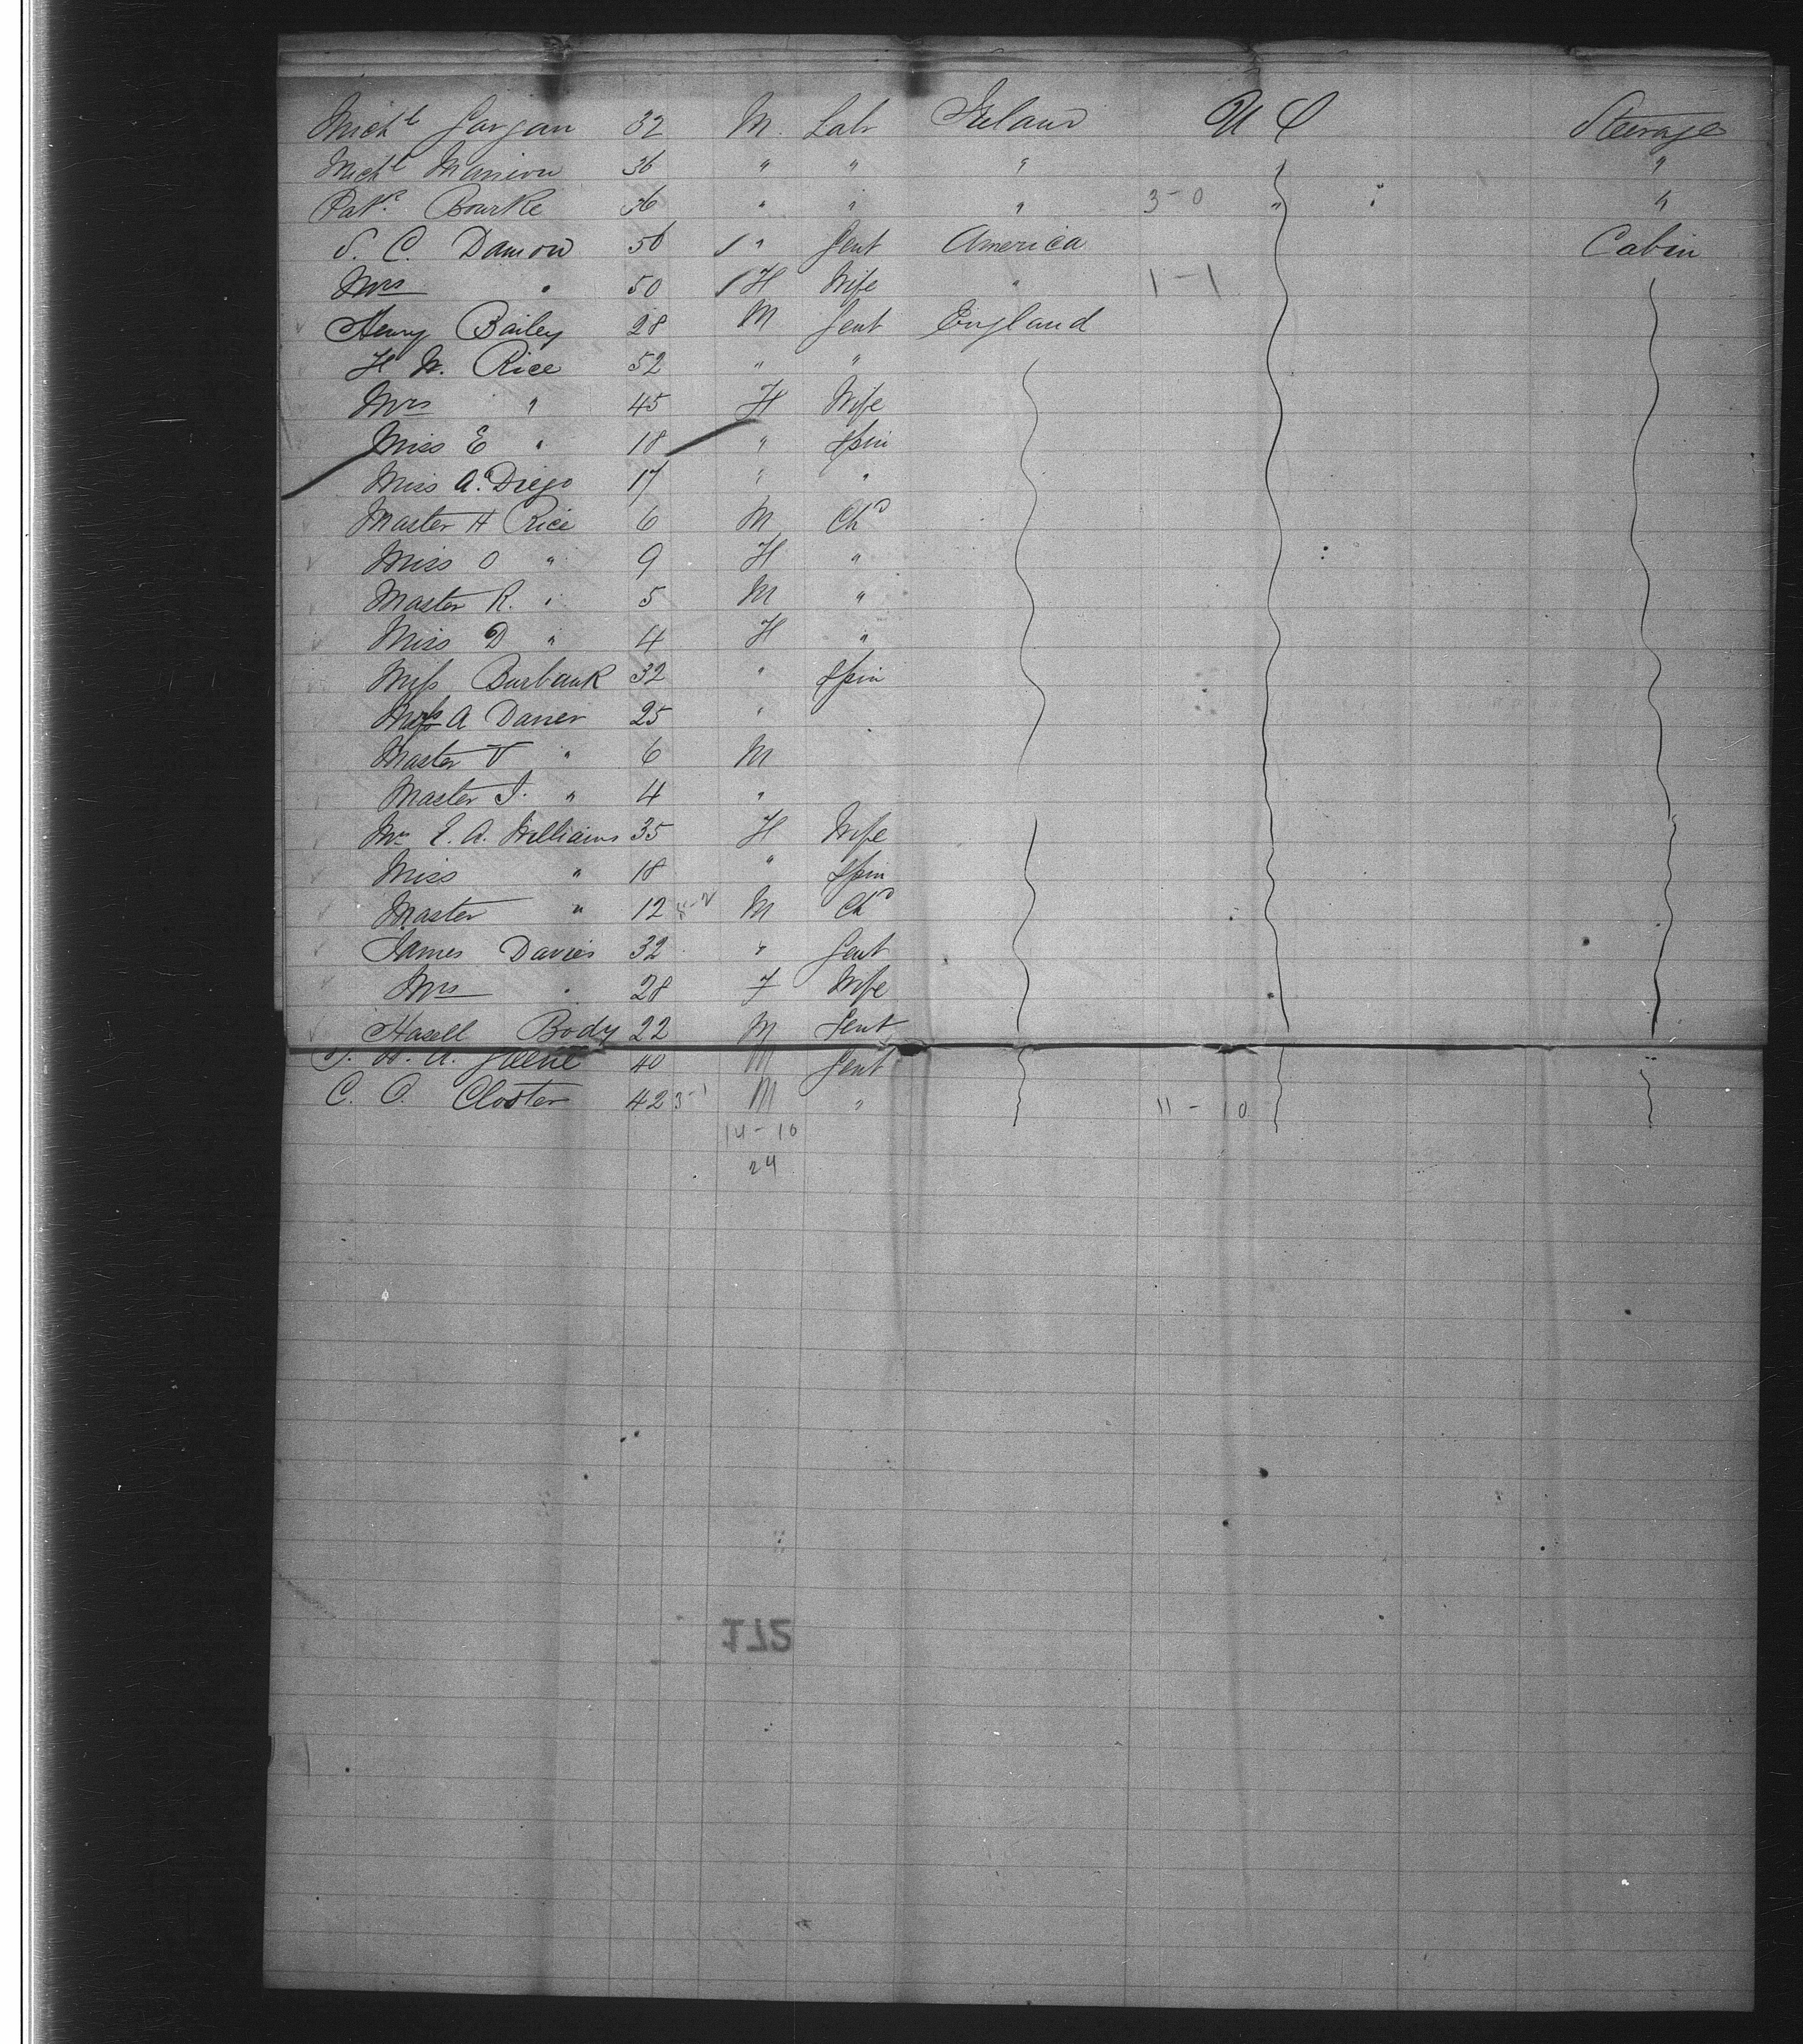 Michl Gargan 32 M. Labr Ireland U S Steerage
Michl Mannion 36 " " " "
Patk Bourke 36 " " " 3-0 " "
S. C. Damon 56 " Gent America Cabin
Mrs " 50 H Wife " 1-1
Henry Bailey 28 M Gent England
H W. Rice 52 " "
Mrs " 45 H Wife
Miss E " 18 " Spin
Miss A. Diego 17 " "
Master H Rice 6 M Chd
Miss O " 9 H "
Master R. " 5 M "
Miss D " 4 H "
Miss Burbank 32 " Spin
A Daner 25 "
Master T " 6 M
Master J. " 4 "
Mrs E. A. Williams 35 H Wife
Miss " 18 " Spin
Master " 12 M Chd
James Davies 32 " Gent
Mrs " 28 F Wife
Hasell Body 22 M Gent
Greene 40 M Gent
C. O. Closter 42 3-1 M " 11-10
14-10
24
172